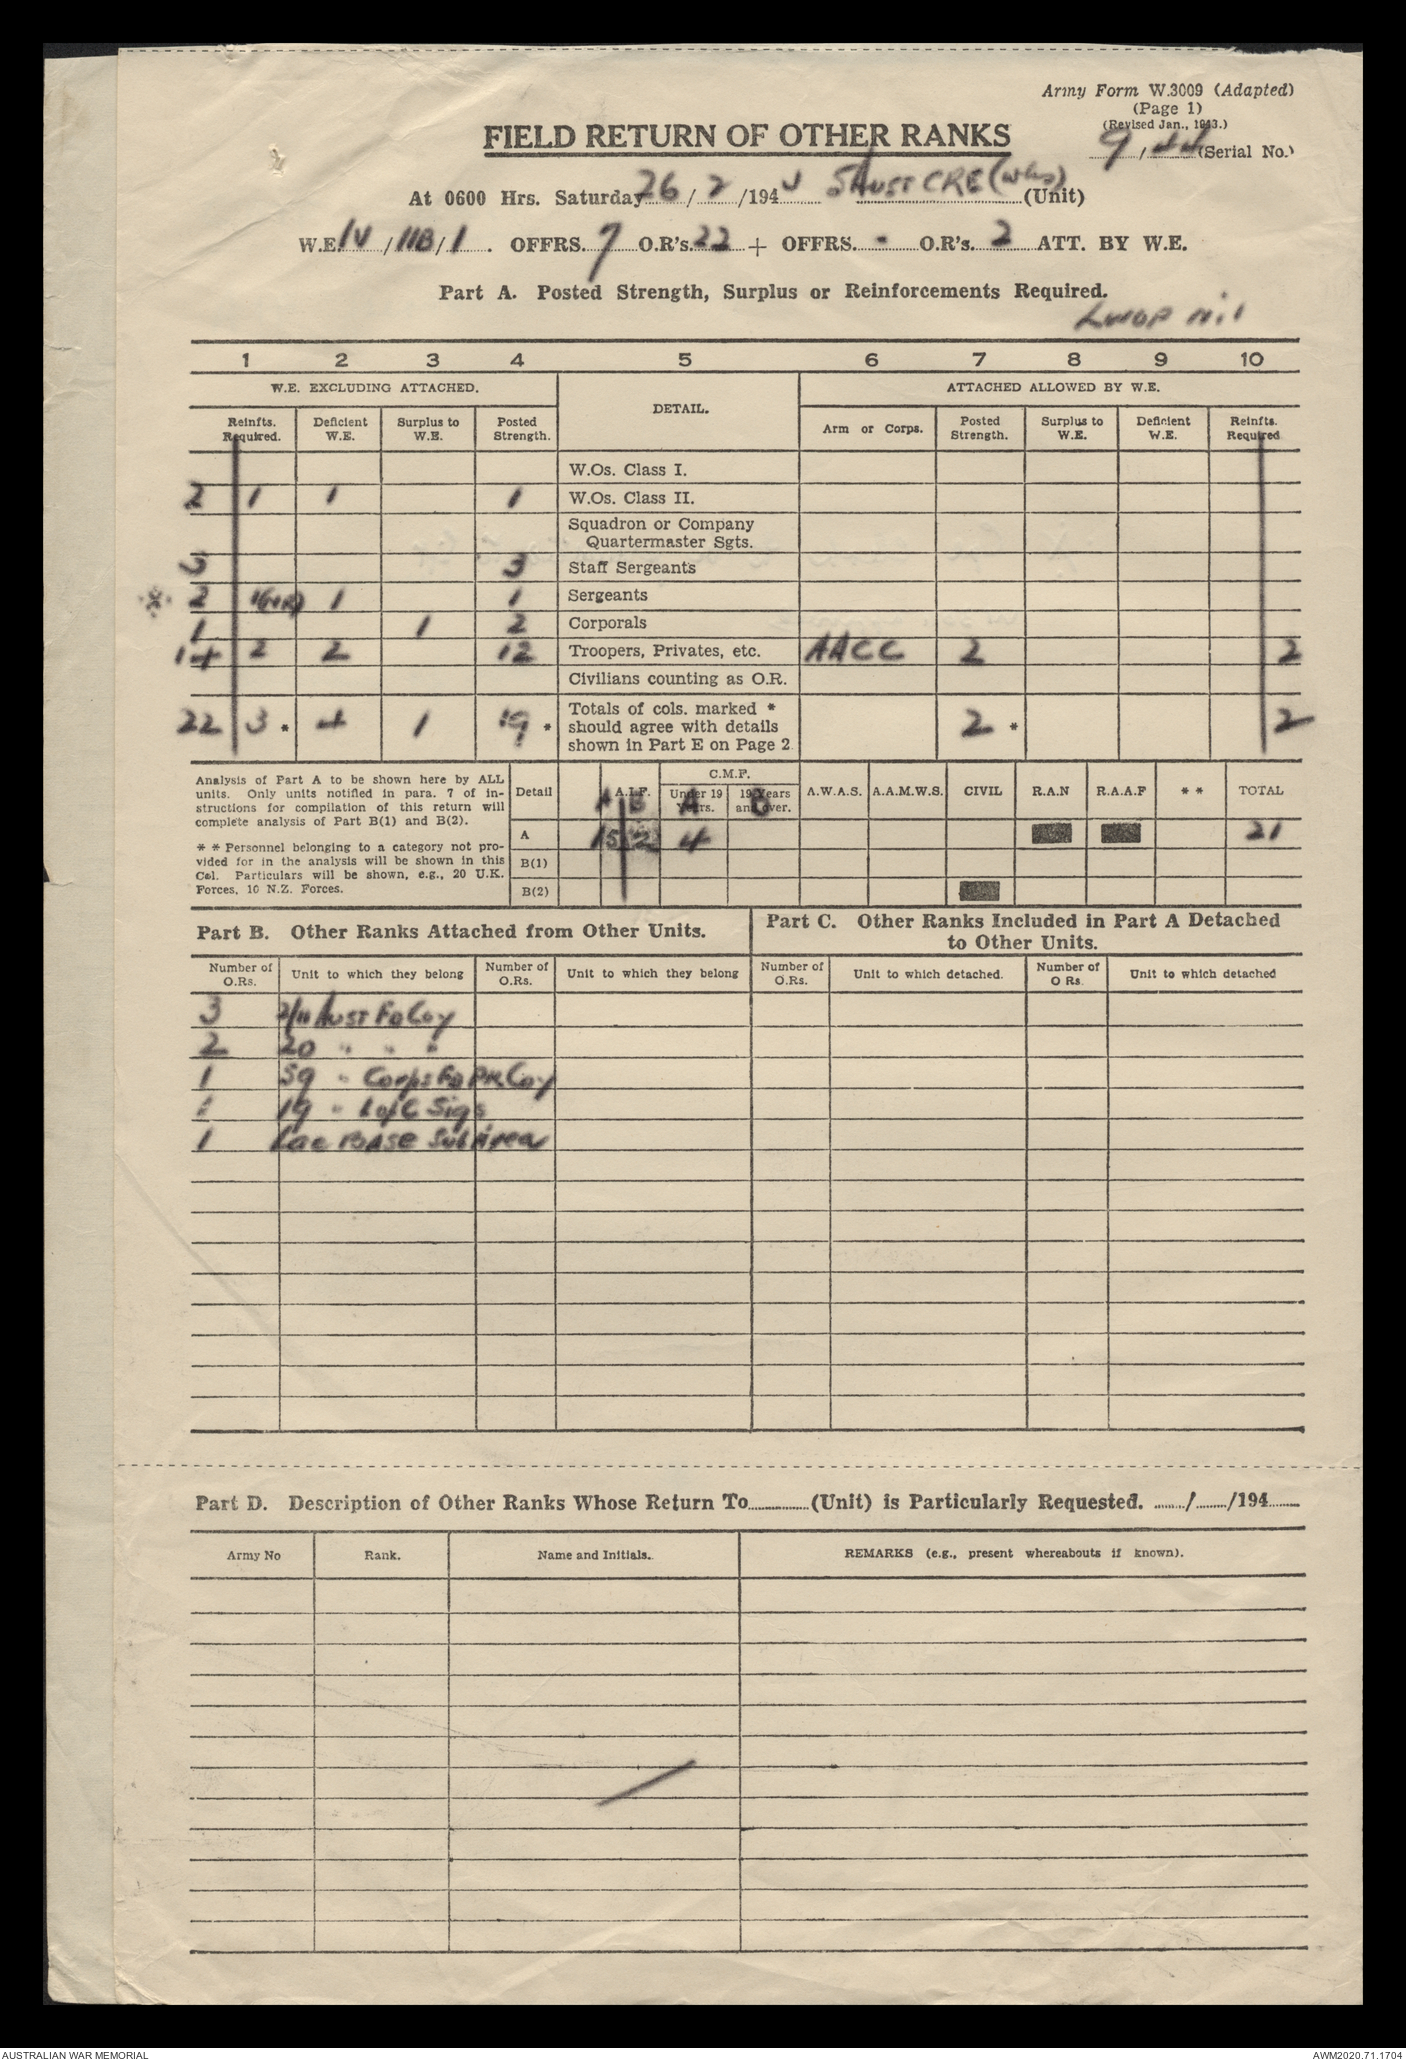 Army Form W.3009 (Adapted)
(Page 1)
(Revised Jan., 1943.)
FIELD RETURN OF OTHER RANKS
9/44 (Serial No.)
At 0600 Hrs. Saturday 26/2/1944 5 AUST CRE (Wks) (Unit)
W.E. IV/11B/1. OFFRS. 7 O.R's. 22 + OFFRS. - O.R's. 2 ATT. BY W.E.
Part A. Posted Strength, Surplus or Reinforcements Required.
LWOP nil
1 2 3 4 5 6 7 8 9 10
W.E. EXCLUDING ATTACHED. DETAIL. ATTACHED ALLOWED BY W.E.
Reinfts. Required. Deficient W.E. Surplus to W.E. Posted Strength. Arm or Corps. Posted Strength. Surplus to W.E. Deficient W.E. Reinfts. Required
W.Os. Class I.
2 1 1 1 W.Os. Class II.
Squadron or Company
Quartermaster Sgts.
3 3 Staff Sergeants
* 2 1 1 Sergeants
1 1 2 Corporals
14 2 2 12 Troopers, Privates, etc. AACC 2 2
Civilians counting as O.R.
22 3 * 4 1 19 * Totals of cols. marked * 2 * 2
should agree with details
shown in Part E on Page 2
Analysis of Part A to be shown here by ALL
units. Only units notified in para. 7 of in-
structions for compilation of this return will
complete analysis of Part B(1) and B(2).
* * Personnel belonging to a category not pro-
vided for in the analysis will be shown in this
Col. Particulars will be shown, e.g., 20 U.K.
Forces, 10 N.Z. Forces.
Detail A.I.F. C.M.F. Under 19 Years. 19 Years and over. A.W.A.S. A.A.M.W.S. CIVIL R.A.N R.A.A.F * * TOTAL
A B A B
A 15 2 4 21
B(1)
B(2)
Part B. Other Ranks Attached from Other Units.
Part C. Other Ranks Included in Part A Detached
to Other Units.
Number of O.Rs. Unit to which they belong Number of O.Rs. Unit to which they belong Number of O.Rs. Unit to which detached. Number of O Rs. Unit to which detached
3 2/11 AUST FD Coy
2 20 " " "
1 59 " Corps FD PK Coy
1 19 " L of C Sigs
1 Lae BASE Sub Area
Part D. Description of Other Ranks Whose Return To (Unit) is Particularly Requested. / /194
Army No Rank. Name and Initials. REMARKS (e.g., present whereabouts if known).
AUSTRALIAN WAR MEMORIAL AWM2020.71.1704